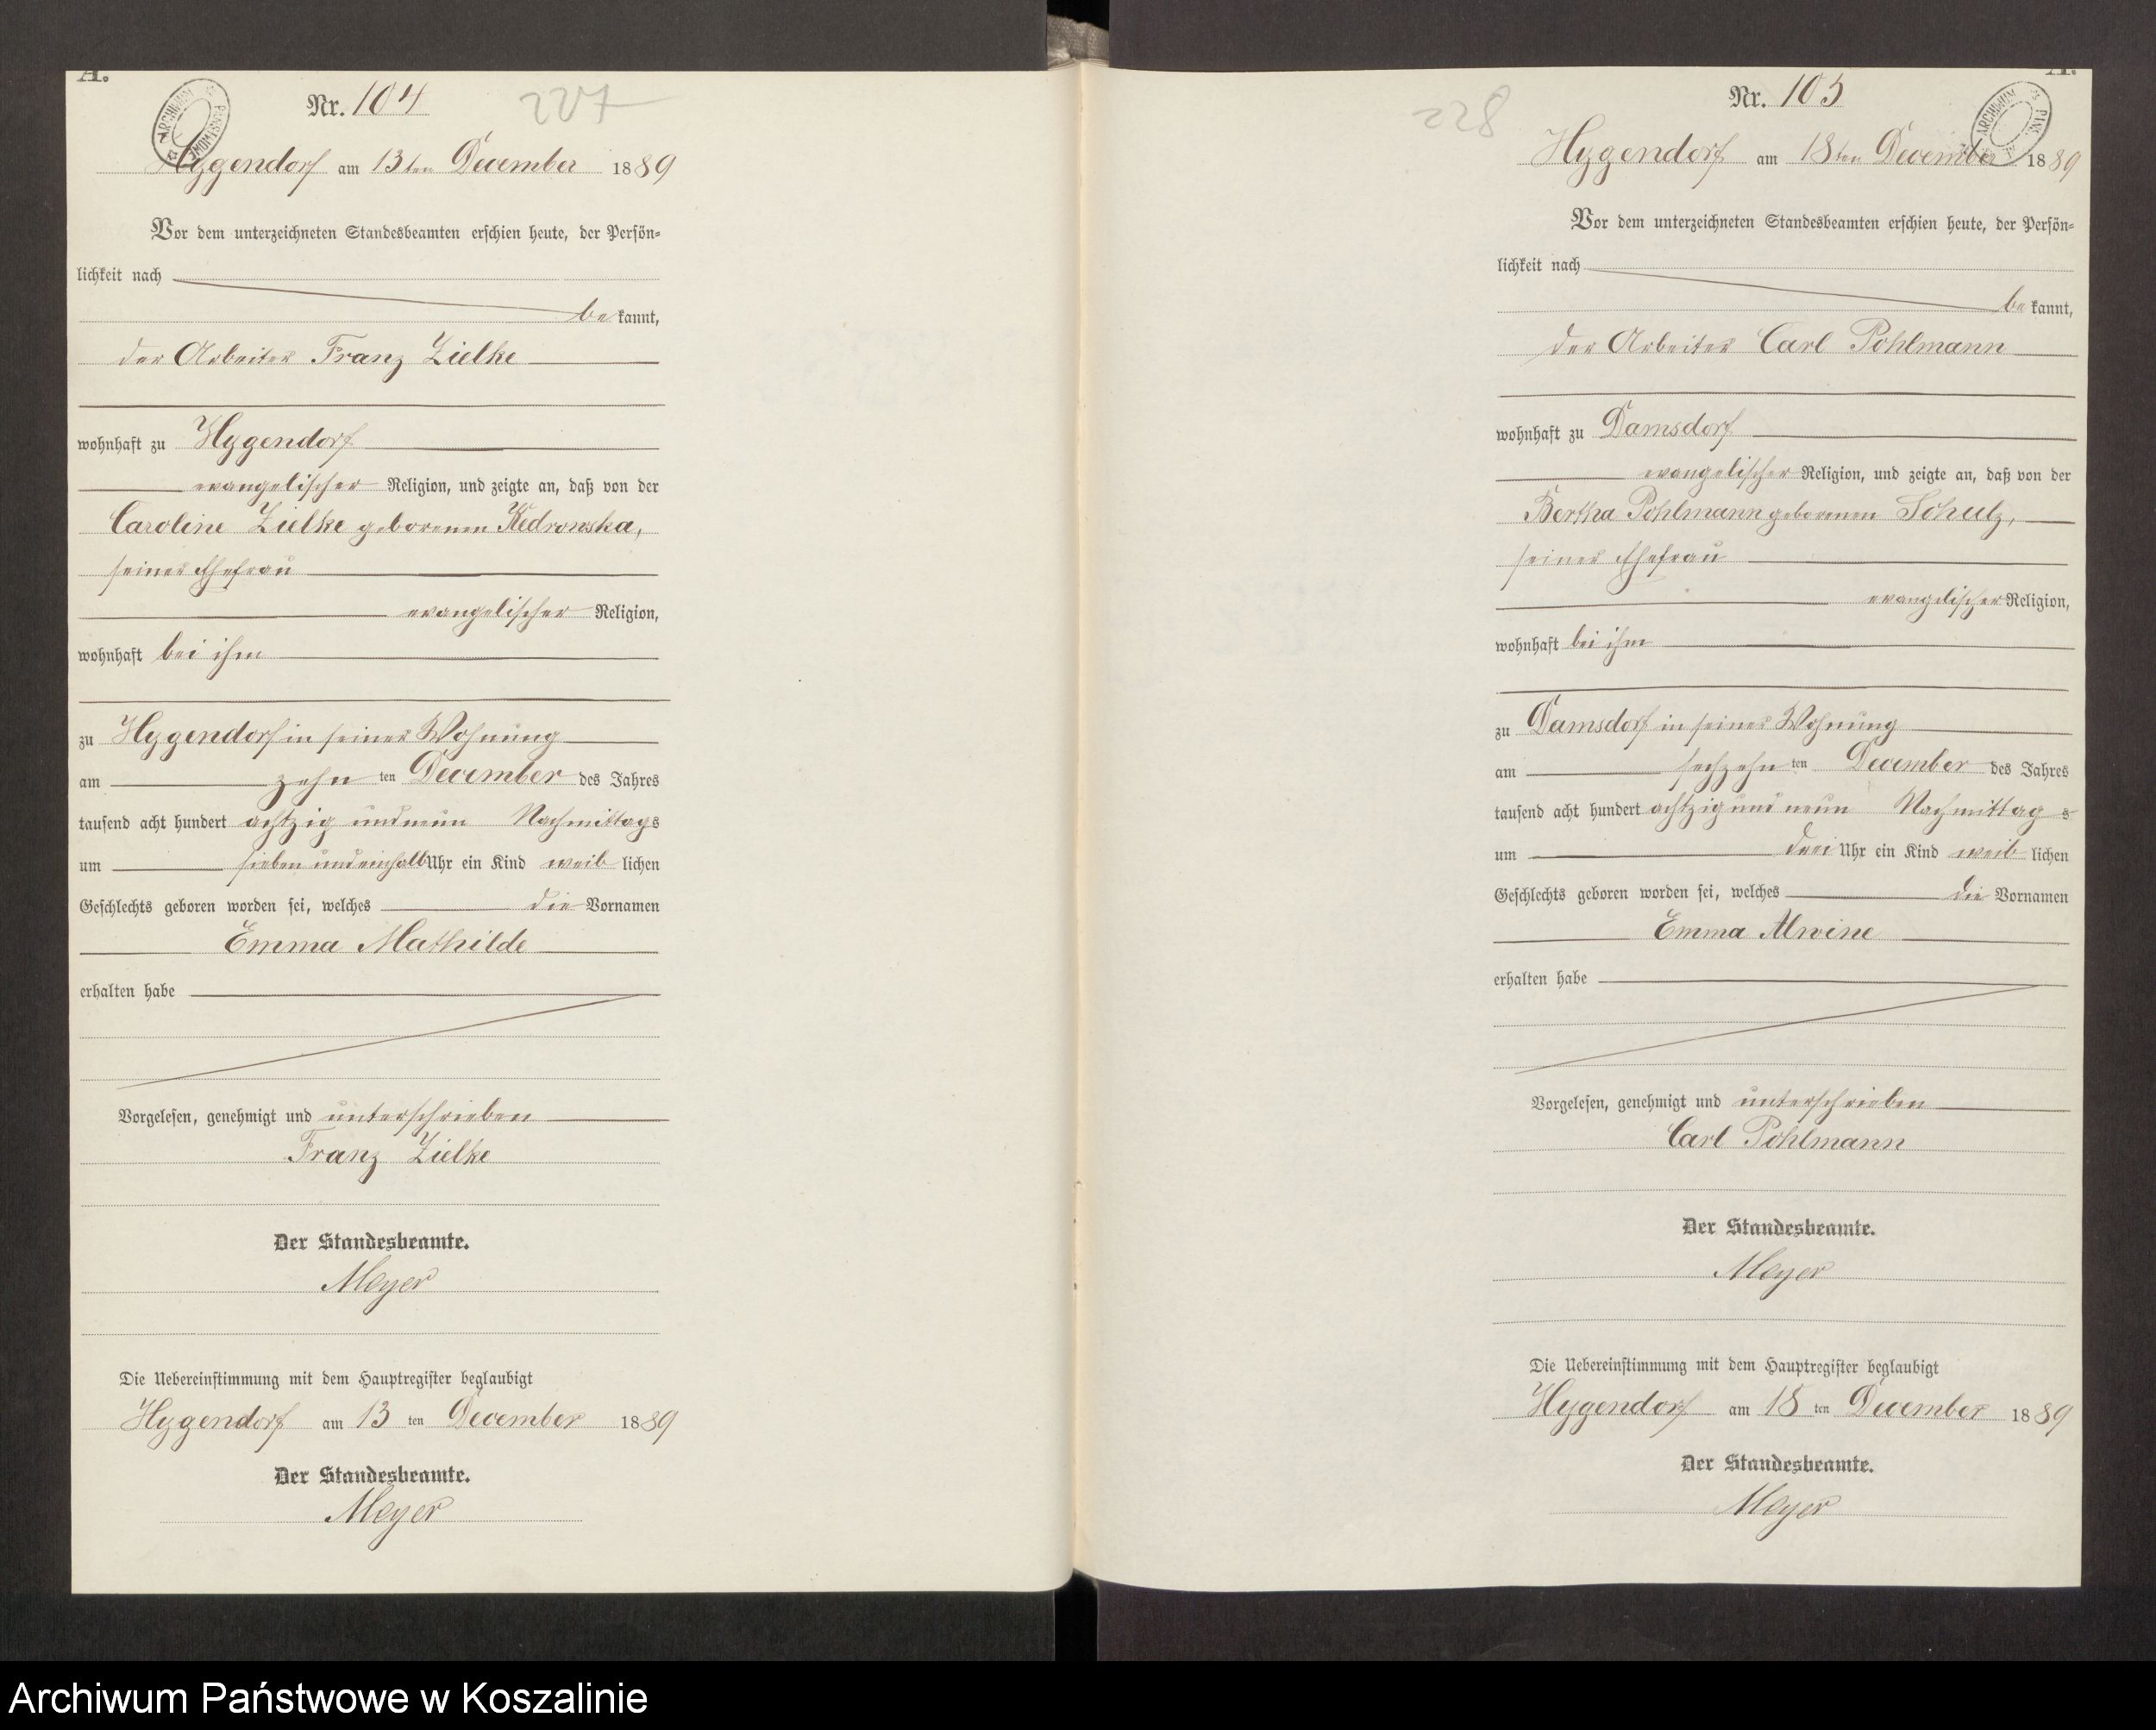 A.
ARCHIWUM PAŃSTWOWE
Nr. 104
227
Hygendorf am 13ten December 1889
Vor dem unterzeichneten Standesbeamten erschien heute, der Persön-
lichkeit nach
bekannt,
der Arbeiter Franz Zielke
wohnhaft zu Hygendorf
evangelischer Religion, und zeigte an, daß von der
Caroline Zielke geborenen Kedrowska,
seiner Ehefrau
evangelischer Religion,
wohnhaft bei ihm
zu Hygendorf in seiner Wohnung
am zehn ten December des Jahres
tausend acht hundert achtzig und neun Nachmittags
um sieben undeinhalb Uhr ein Kind weiblichen
Geschlechts geboren worden sei, welches die Vornamen
Emma Mathilde
erhalten habe
Vorgelesen, genehmigt und unterschrieben
Franz Zielke
Der Standesbeamte.
Meyer
Die Uebereinstimmung mit dem Hauptregister beglaubigt
Hygendorf am 13 ten December 1889
Der Standesbeamte.
Meyer
A.
ARCHIWUM
Nr. 105
228
Hygendorf am 18ten December 1889
Vor dem unterzeichneten Standesbeamten erschien heute, der Persön-
lichkeit nach
bekannt,
der Arbeiter Carl Pohlmann
wohnhaft zu Damsdorf
evangelischer Religion, und zeigte an, daß von der
Bertha Pohlmann geborenen Schulz,
seiner Ehefrau
evangelischer Religion,
wohnhaft bei ihm
zu Damsdorf in seiner Wohnung
am sechzehn ten December des Jahres
tausend acht hundert achtzig und neun Nachmittag s
um drei Uhr ein Kind weiblichen
Geschlechts geboren worden sei, welches die Vornamen
Emma Alwine
erhalten habe
Vorgelesen, genehmigt und unterschrieben
Carl Pohlmann
Der Standesbeamte.
Meyer
Die Uebereinstimmung mit dem Hauptregister beglaubigt
Hygendorf am 18 ten December 1889
Der Standesbeamte.
Meyer
Archiwum Państwowe w Koszalinie